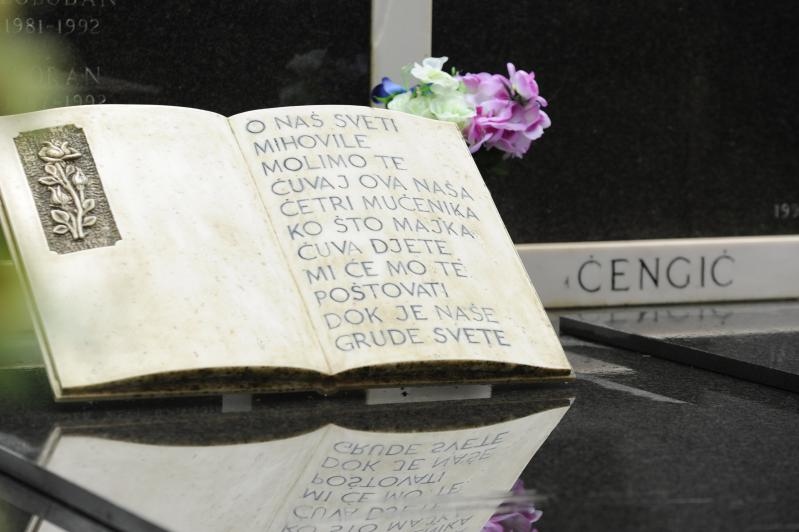 SLOBODAN
1981-1992
O NAŠ SVETI
MIHOVILE
MOLIMO TE
ČUVAJ OVA NAŠA
ČETRI MUČENIKA
KO ŠTO MAJKA
ČUVA DJETE
MI ĆE MO TE
POŠTOVATI
DOK JE NAŠE
GRUDE SVETE
ČENGIĆ